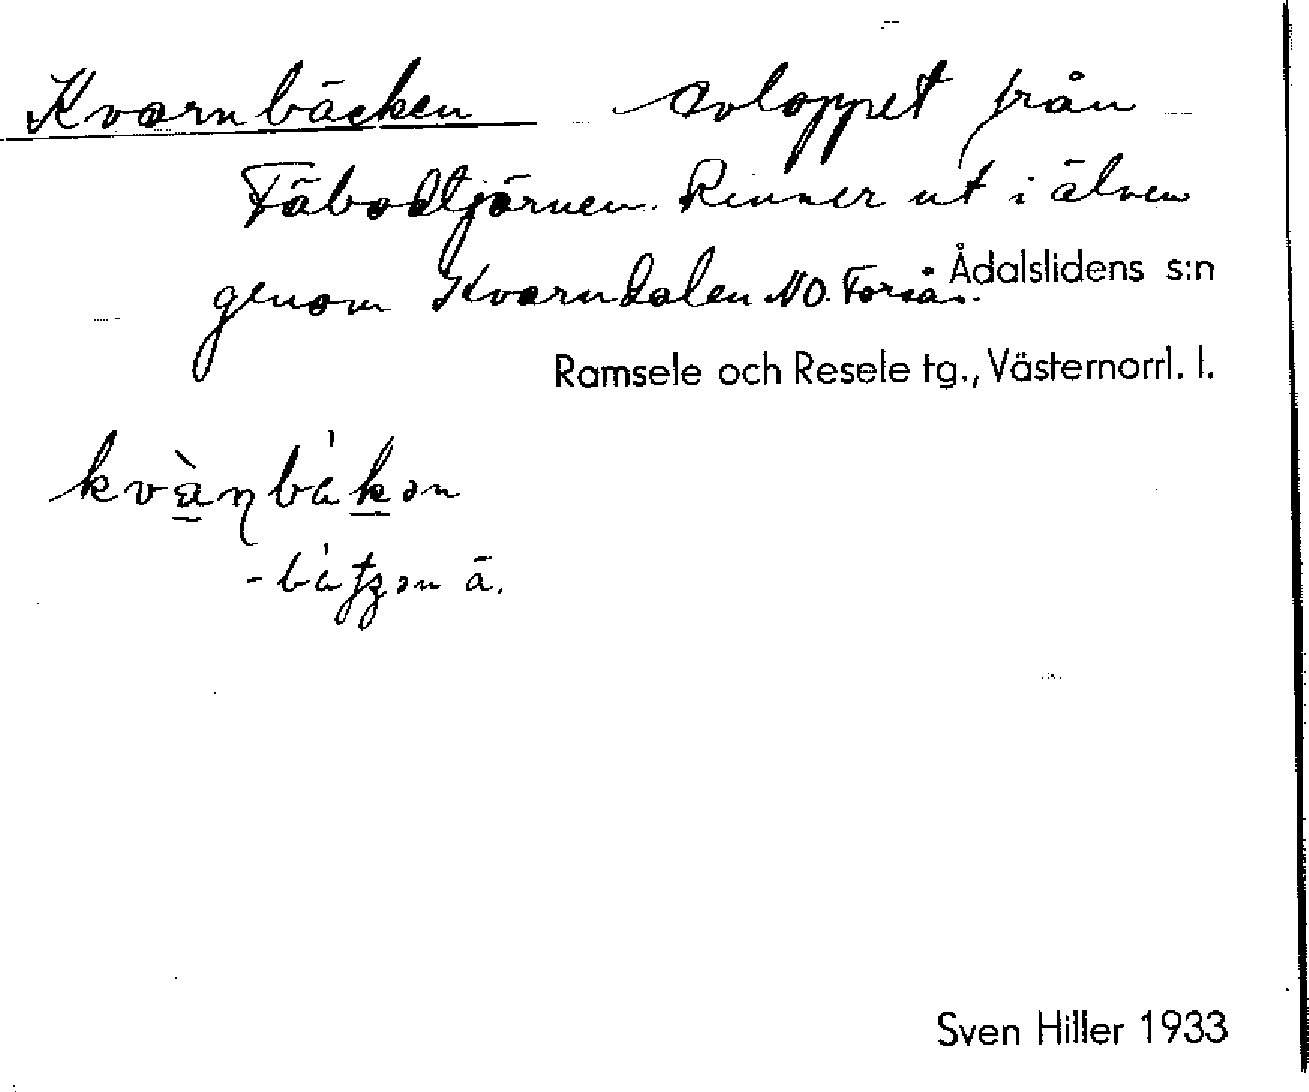 Kvarnbäcken avloppet från
Fäbodtjärnen. Rinner ut i älven
genom Kvarndalen NO. Forsås.
Ådalslidens s:n
Ramsele och Resele tg., Västernorrl. l.
kvàɳbàkən
ä.
Sven Hiller 1933